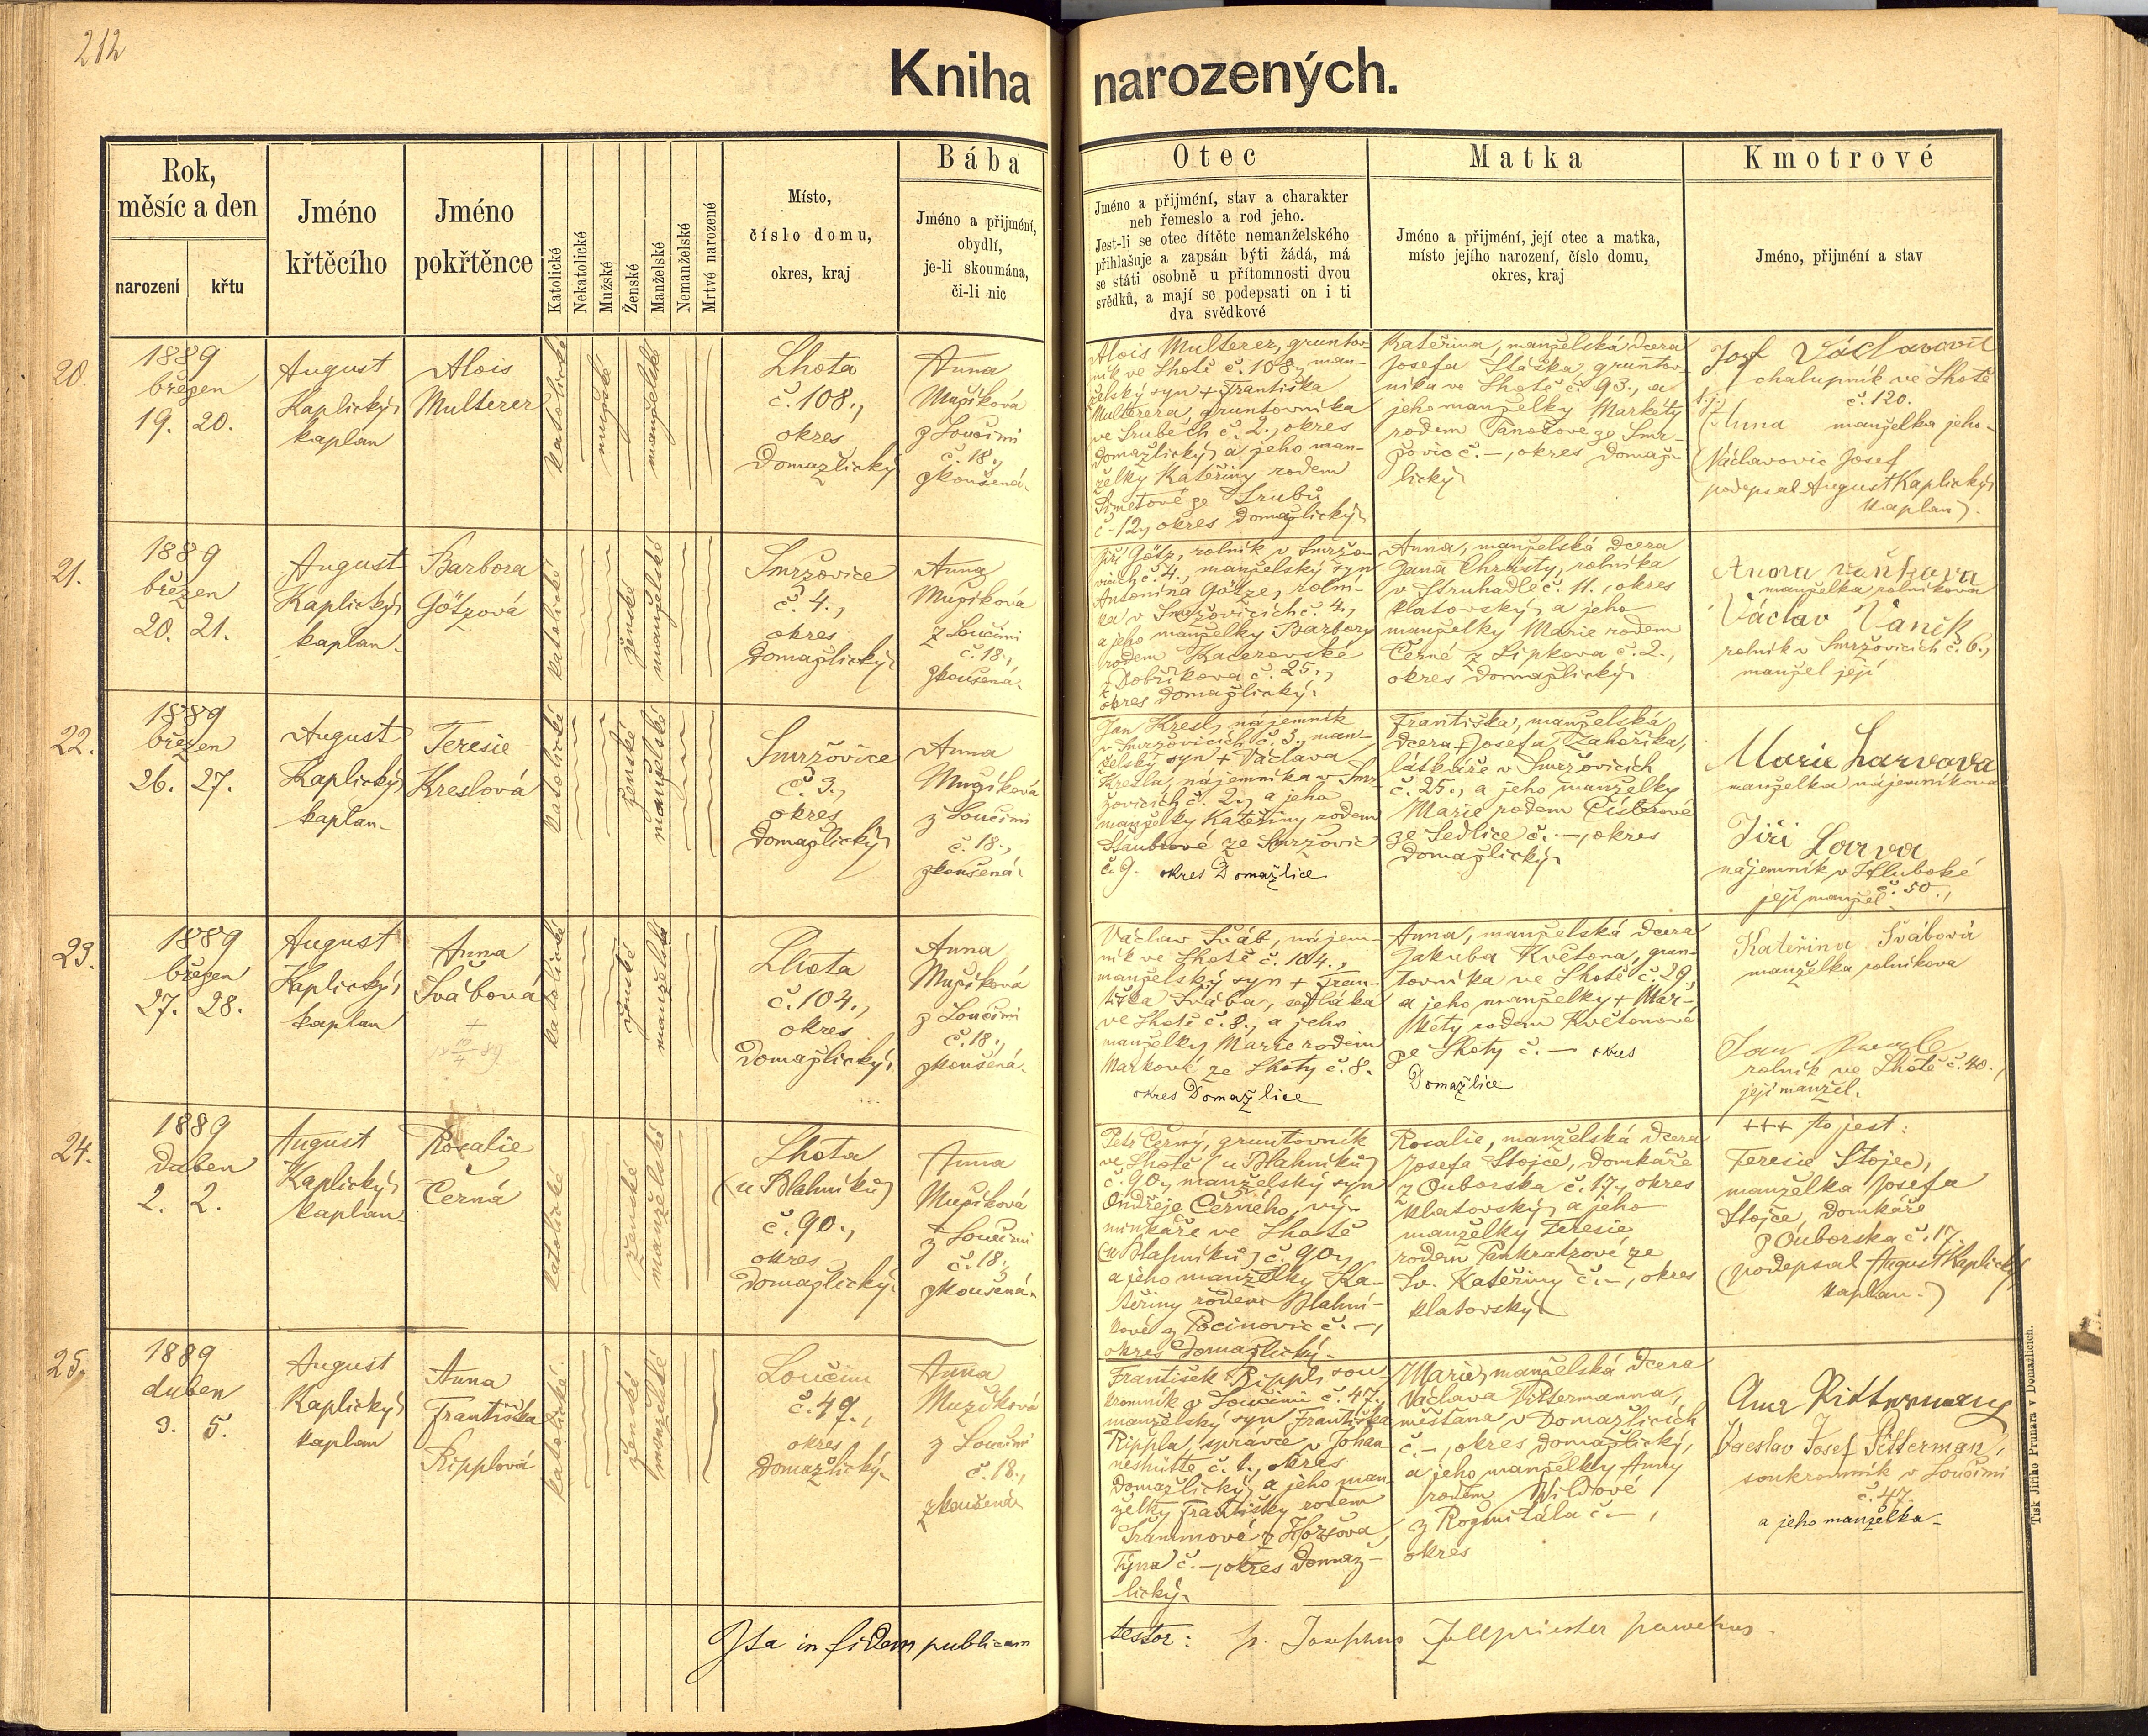 212
Kniha narozených.
Rok,
měsíc a den
narození
křtu
Jméno
křtěcího
Jméno
pokřtěnce
Katolické
Nekatolické
Mužské
Ženské
Manželské
Nemanželské
Mrtvě narozené
Místo,
číslo domu,
okres, kraj
Bába
Jméno a přijmění,
obydlí,
je-li skoumána,
či-li nic
Otec
Jméno a přijmění, stav a charakter
neb řemeslo a rod jeho.
Jest-li se otec dítěte nemanželského
přihlašuje a zapsán býti žádá, má
se státi osobně u přítomnosti dvou
svědků, a mají se podepsati on i ti
dva svědkové
Matka
Jméno a přijmění, její otec a matka,
místo jejího narození, číslo domu,
okres, kraj
Kmotrové
Jméno, přijmění a stav
20.
1889
březen
19. 20.
August
Kaplický,
kaplan
Alois
Multerer
katolické
mužské
manželské
Lhota
č. 108.,
okres
Domažlický
Anna
Mužíková
z Loučimi
č. 18.,
zkoušená.
Alois Multerer, gruntov-
ník ve Lhotě č. 108., man-
želský syn + Františka
Multerera, gruntovníka
ve Srubech č. 2., okres
Domažlický, a jeho man-
želky Kateřiny rodem
ze Srubů
č. 12., okres Domažlický.
Kateřina, manželská dcera
Josefa gruntov-
níka ve Lhotě č. 93., a
jeho manželky Markéty
rodem ze Smr-
žovic č. –, okres Domaž-
lický
Josef Václavovic
chalupník ve Lhotě
č. 120.
Anna manželka jeho.
(Václavovic Josef
podepsal August Kaplický,
kaplan).
21.
1889
březen
20. 21.
August
Kaplický,
kaplan.
Barbora
Götzová
katolické
ženské
manželské
Smržovice
č. 4.,
okres
Domažlický.
Anna
Mužíková
z Loučimi
č. 18.,
zkoušená.
Jiří Götz, rolník v Smržo-
vicích č. 4., manželský syn
Antonína Götze, rolní-
ka v Smržovicích č. 4.,
a jeho manželky Barbory
rodem Kacerovské
z Dobříkova č. 25.,
okres Domažlický.
Anna, manželská dcera
Jana Chrästy, rolníka
v Struhadle č. 11., okres
klatovský, a jeho
manželky Marie rodem
Černé z Lipkova č. 2.,
okres Domažlický.
Anna Vaňková
manželka rolníkova
Václav Vaník
rolník v Smržovicích č. 6.,
manžel její
22.
1889
březen
26. 27.
August
Kaplický,
kaplan.
Teresie
Kreslová
katolické
ženské
manželské
Smržovice
č. 3.,
okres
Domažlický
Anna
Mužíková
z Loučimi
č. 18.,
zkoušená.
Jan Kresl, nájemník
v Smržovicích č. 3., man-
želský syn + Václava
Kresla, nájemníka v Smr-
žovicích č. 2., a jeho
manželky Kateřiny rodem
ze Smržovic
č. 9. okres Domažlice
Františka, manželská
dcera + Josefa Záhoříka,
láskáře v Smržovicích
č. 25., a jeho manželky
Marie rodem Čisterové
ze Sedlice č. –, okres
Domažlický.
Marie Larvova
manželka nájemníkova
Jiří Larva
nájemník v Hluboké
č. 50.,
její manžel
23.
1889
březen
27. 28.
August
Kaplický,
kaplan
Anna
Švábová
+
katolické
ženské
manželské
Lhota
č. 104.,
okres
Domažlický.
Anna
Mužíková
z Loučimi
č. 18.,
zkoušená.
Václav Šváb, nájem-
ník ve Lhotě č. 104.,
manželský syn + Fran-
tiška Švába, sedláka
ve Lhotě č. 8., a jeho
manželky Marie rodem
Markové ze Lhoty č. 8.
okres Domažlice
Anna, manželská dcera
Jakuba Květona, grun-
tovníka ve Lhotě č. 29.,
a jeho manželky + Mar-
kéty rodem Květonové
ze Lhoty č. – okres
Domažlice
Kateřina Švábová
manželka rolníkova
rolník ve Lhotě č. 40.,
její manžel.
24.
1889
Duben
2. 2.
August
Kaplický,
kaplan
Rosalie
Černá
katolické
ženské
manželské
Lhota
(u Blahníků)
č. 90.,
okres
Domažlický.
Anna
Mužíková
z Loučimi
č. 18.,
zkoušená.
Petr Černý, gruntovník
ve Lhotě (u Blahníků)
č. 90., manželský syn
Ondřeje Černého, vý-
minkáře ve Lhotě
(u Blahníků) č. 90.,
a jeho manželky Ka-
teřiny rodem Blahní-
kové z Pocinovic č. –,
okres Domažlický.
Rosalie, manželská dcera
Josefa Stojce, domkáře
z Ouborska č. 17., okres
klatovský, a jeho
manželky Teresie
rodem Pankratzové ze
Sv. Kateřiny č. –, okres
klatovský
+++ to jest:
Teresie Stojec,
manželka Josefa
Stojce, domkáře
z Ouborska č. 17.
(podepsal August Kaplický
kaplan.)
25.
1889
duben
3. 5.
August
Kaplický,
kaplan
Anna
Františka
Ripplová
katolické
ženské
manželské
Loučim
č. 47.,
okres
Domažlický.
Anna
Mužíková
z Loučimi
č. 18.,
zkoušená
František Rippl, sou-
kromník v Loučimi č. 47.,
manželský syn Františka
Rippla, správce v Johan-
neshütte č. 1., okres
Domažlický, a jeho man-
želky Františky rodem
Srammové z Horšova
Týna č. –, okres Domaž-
lický.
Marie, manželská dcera
Václava Pittermanna,
měšťana v Domažlicích
č. –, okres Domažlický,
a jeho manželky Anny
rodem Wildové
z Rožmitála č. –,
okres
Anna Pittermann
Václav Josef Pitterman,
soukromník v Loučimi
č. 47
a jeho manželka.
Ita in fidem publicam
testor: P. Josephus parochus.
Tisk Jiřího Prunara v Domažlicích.